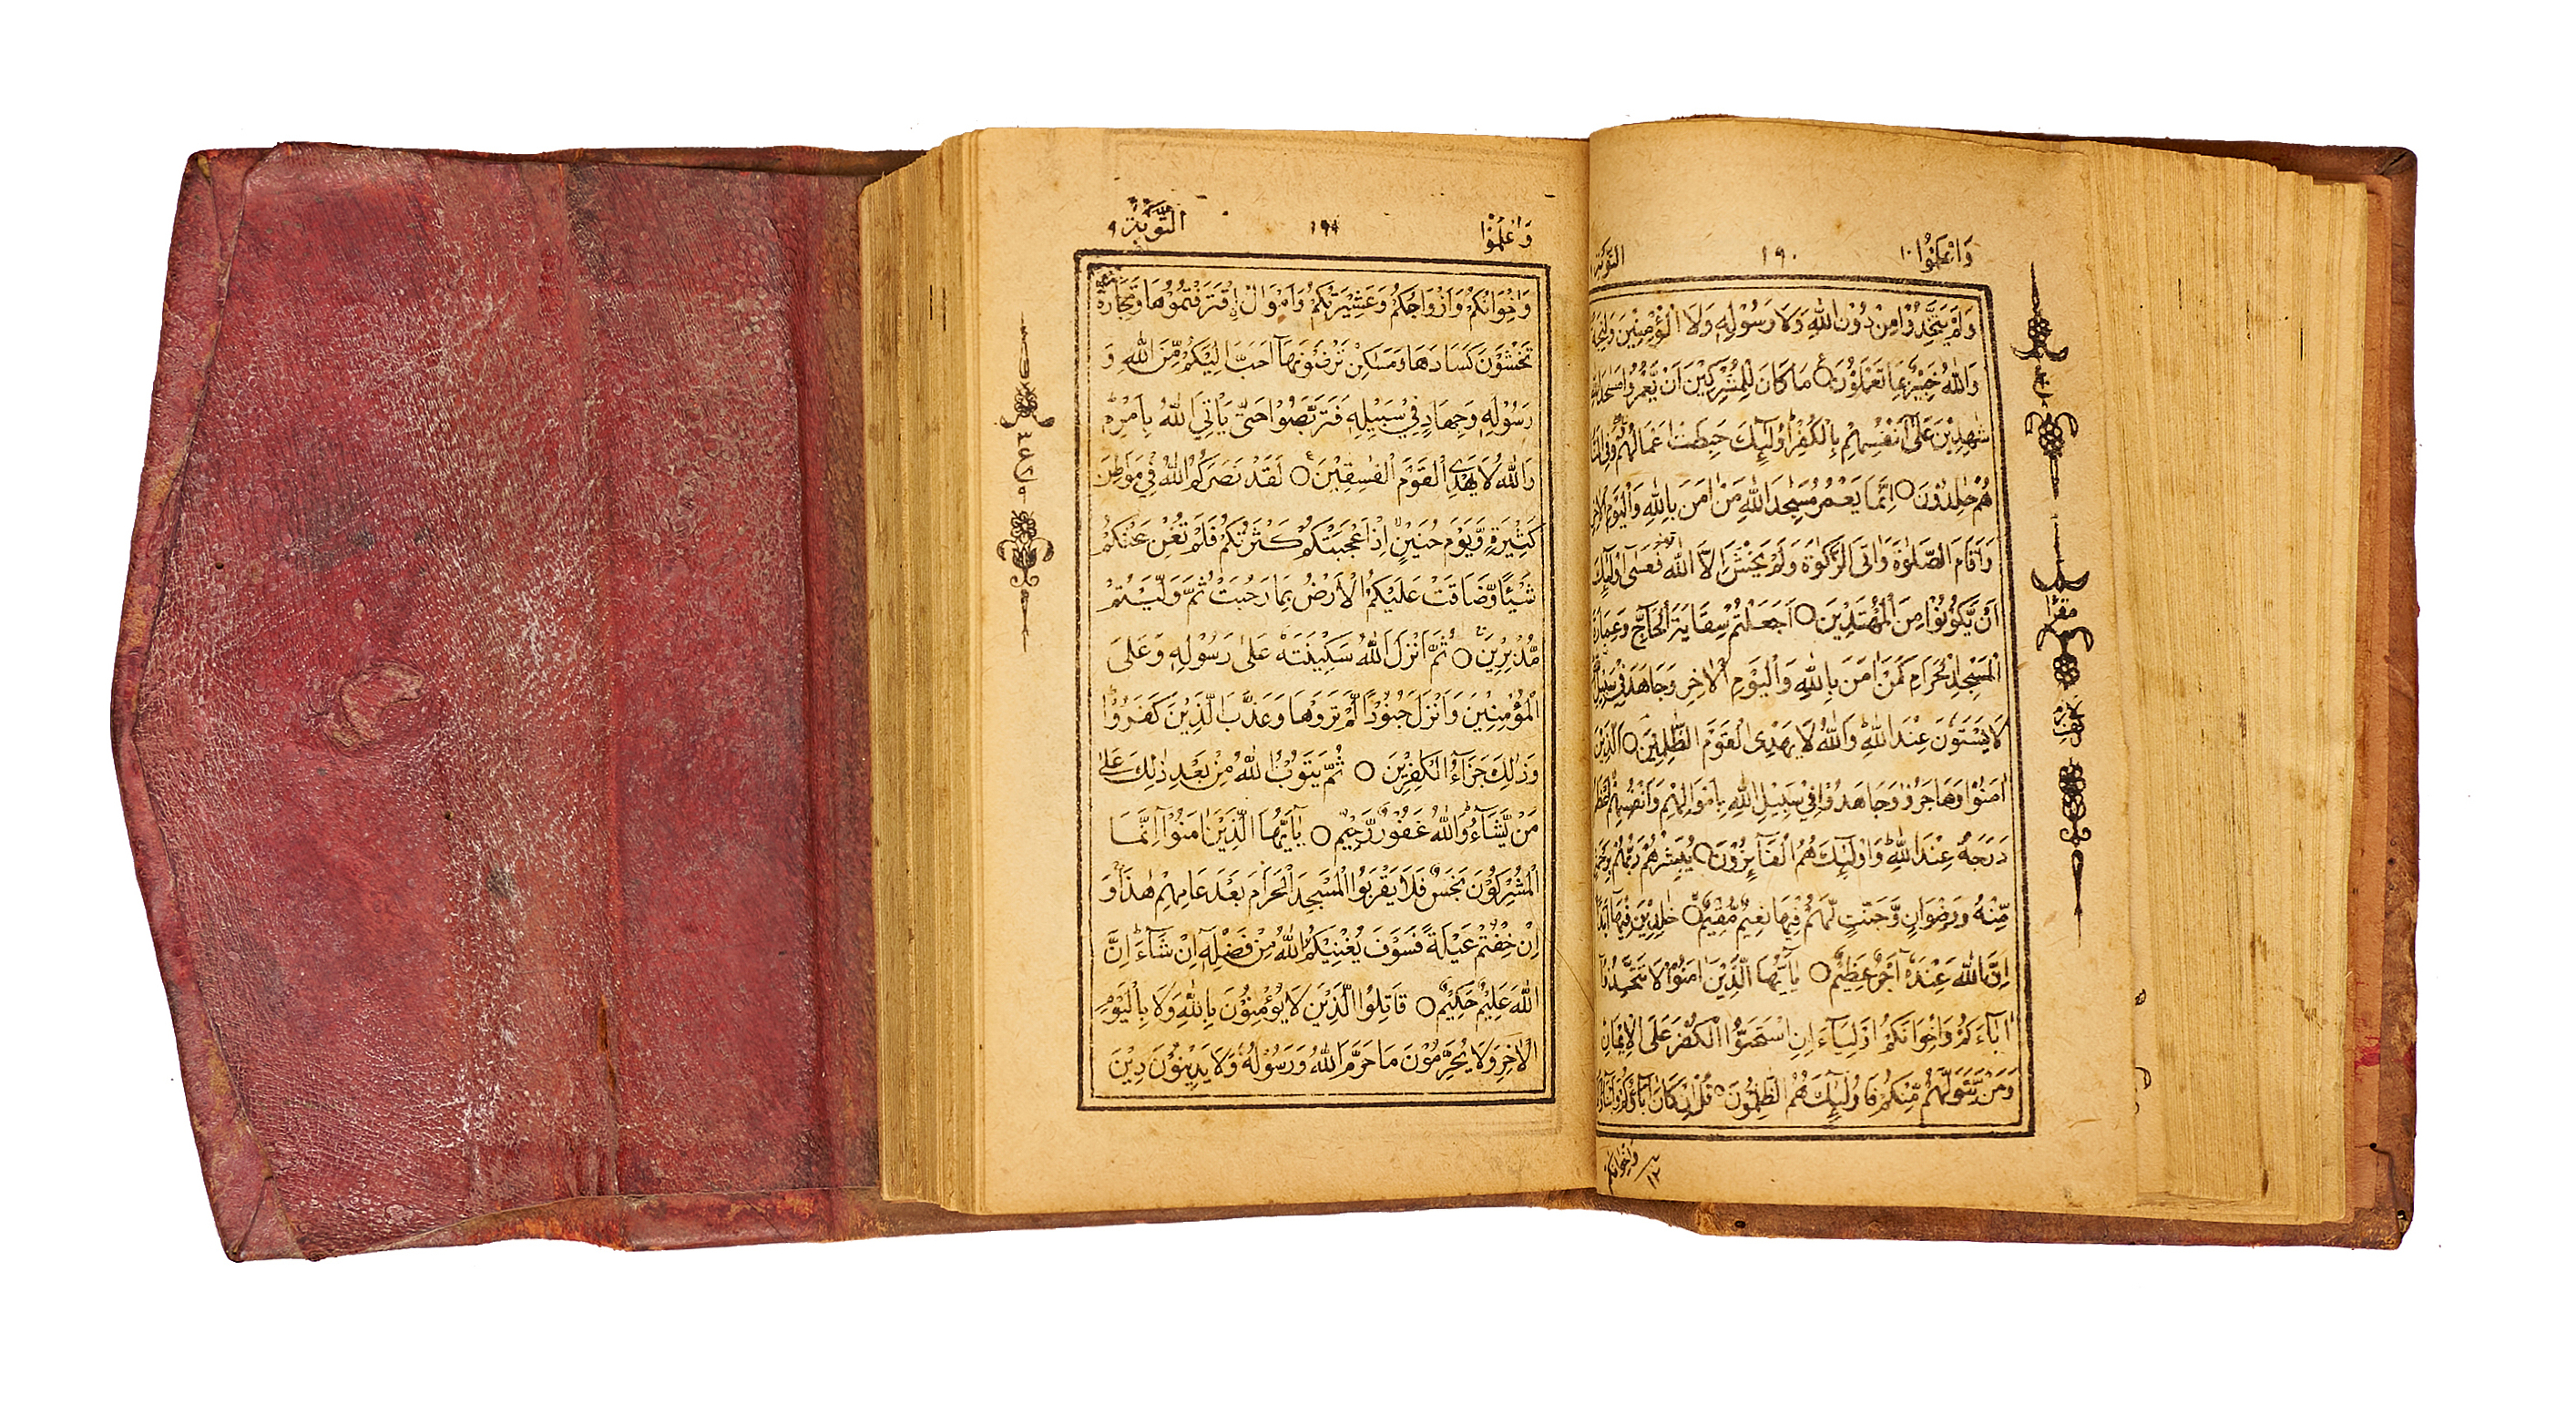 وَاعْلَمُوْٓا ١٠
١٩٠
التوبة
وَلَمْ يَتَّخِذُوْا مِنْ دُوْنِ اللّٰهِ وَلَا رَسُوْلِهٖ وَلَا الْمُؤْمِنِيْنَ وَلِيْجَةً
وَاللّٰهُ خَبِيْرٌۢ بِمَا تَعْمَلُوْنَ ○ مَا كَانَ لِلْمُشْرِكِيْنَ اَنْ يَّعْمُرُوْا مَسٰجِدَ اللّٰهِ
شٰهِدِيْنَ عَلٰٓى اَنْفُسِهِمْ بِالْكُفْرِ اُولٰٓئِكَ حَبِطَتْ اَعْمَالُهُمْ وَفِى النَّارِ
هُمْ خٰلِدُوْنَ ○ اِنَّمَا يَعْمُرُ مَسٰجِدَ اللّٰهِ مَنْ اٰمَنَ بِاللّٰهِ وَالْيَوْمِ الْاٰخِرِ
وَاَقَامَ الصَّلٰوةَ وَاٰتَى الزَّكٰوةَ وَلَمْ يَخْشَ اِلَّا اللّٰهَ فَعَسٰٓى اُولٰٓئِكَ
اَنْ يَّكُوْنُوْا مِنَ الْمُهْتَدِيْنَ ○ اَجَعَلْتُمْ سِقَايَةَ الْحَآجِّ وَعِمَارَةَ
الْمَسْجِدِ الْحَرَامِ كَمَنْ اٰمَنَ بِاللّٰهِ وَالْيَوْمِ الْاٰخِرِ وَجَاهَدَ فِيْ سَبِيْلِ
لَا يَسْتَوٗنَ عِنْدَ اللّٰهِ وَاللّٰهُ لَا يَهْدِى الْقَوْمَ الظّٰلِمِيْنَ ○ اَلَّذِيْنَ
اٰمَنُوْا وَهَاجَرُوْا وَجَاهَدُوْا فِيْ سَبِيْلِ اللّٰهِ بِاَمْوَالِهِمْ وَاَنْفُسِهِمْ اَعْظَمُ
دَرَجَةً عِنْدَ اللّٰهِ وَاُولٰٓئِكَ هُمُ الْفَآئِزُوْنَ ○ يُبَشِّرُهُمْ رَبُّهُمْ بِرَحْمَةٍ
مِّنْهُ وَرِضْوَانٍ وَّجَنّٰتٍ لَّهُمْ فِيْهَا نَعِيْمٌ مُّقِيْمٌ ○ خٰلِدِيْنَ فِيْهَآ اَبَدًا
اِنَّ اللّٰهَ عِنْدَهٗٓ اَجْرٌ عَظِيْمٌ ○ يٰٓاَيُّهَا الَّذِيْنَ اٰمَنُوْا لَا تَتَّخِذُوْٓا
اٰبَآءَكُمْ وَاِخْوَانَكُمْ اَوْلِيَآءَ اِنِ اسْتَحَبُّوا الْكُفْرَ عَلَى الْاِيْمَانِ
وَمَنْ يَّتَوَلَّهُمْ مِّنْكُمْ فَاُولٰٓئِكَ هُمُ الظّٰلِمُوْنَ ○ قُلْ اِنْ كَانَ اٰبَآؤُكُمْ وَاَبْنَآؤُكُمْ
وَاِخْوَانُكُمْ
وَاعْلَمُوْٓا
١٩١
التَّوْبَة ٩
وَاِخْوَانُكُمْ وَاَزْوَاجُكُمْ وَعَشِيْرَتُكُمْ وَاَمْوَالُ اِۨقْتَرَفْتُمُوْهَا وَتِجَارَةٌ
تَخْشَوْنَ كَسَادَهَا وَمَسٰكِنُ تَرْضَوْنَهَآ اَحَبَّ اِلَيْكُمْ مِّنَ اللّٰهِ وَ
رَسُوْلِهٖ وَجِهَادٍ فِيْ سَبِيْلِهٖ فَتَرَبَّصُوْا حَتّٰى يَاْتِيَ اللّٰهُ بِاَمْرِهٖ
وَاللّٰهُ لَا يَهْدِى الْقَوْمَ الْفٰسِقِيْنَ ○ لَقَدْ نَصَرَكُمُ اللّٰهُ فِيْ مَوَاطِنَ
كَثِيْرَةٍ وَّيَوْمَ حُنَيْنٍ اِذْ اَعْجَبَتْكُمْ كَثْرَتُكُمْ فَلَمْ تُغْنِ عَنْكُمْ
شَيْئًا وَّضَاقَتْ عَلَيْكُمُ الْاَرْضُ بِمَا رَحُبَتْ ثُمَّ وَلَّيْتُمْ
مُّدْبِرِيْنَ ○ ثُمَّ اَنْزَلَ اللّٰهُ سَكِيْنَتَهٗ عَلٰى رَسُوْلِهٖ وَعَلَى
الْمُؤْمِنِيْنَ وَاَنْزَلَ جُنُوْدًا لَّمْ تَرَوْهَا وَعَذَّبَ الَّذِيْنَ كَفَرُوْا
وَذٰلِكَ جَزَآءُ الْكٰفِرِيْنَ ○ ثُمَّ يَتُوْبُ اللّٰهُ مِنْۢ بَعْدِ ذٰلِكَ عَلٰى
مَنْ يَّشَآءُ وَاللّٰهُ غَفُوْرٌ رَّحِيْمٌ ○ يٰٓاَيُّهَا الَّذِيْنَ اٰمَنُوْٓا اِنَّمَا
الْمُشْرِكُوْنَ نَجَسٌ فَلَا يَقْرَبُوا الْمَسْجِدَ الْحَرَامَ بَعْدَ عَامِهِمْ هٰذَا وَ
اِنْ خِفْتُمْ عَيْلَةً فَسَوْفَ يُغْنِيْكُمُ اللّٰهُ مِنْ فَضْلِهٖٓ اِنْ شَآءَ اِنَّ
اللّٰهَ عَلِيْمٌ حَكِيْمٌ ○ قَاتِلُوا الَّذِيْنَ لَا يُؤْمِنُوْنَ بِاللّٰهِ وَلَا بِالْيَوْمِ
الْاٰخِرِ وَلَا يُحَرِّمُوْنَ مَا حَرَّمَ اللّٰهُ وَرَسُوْلُهٗ وَلَا يَدِيْنُوْنَ دِيْنَ